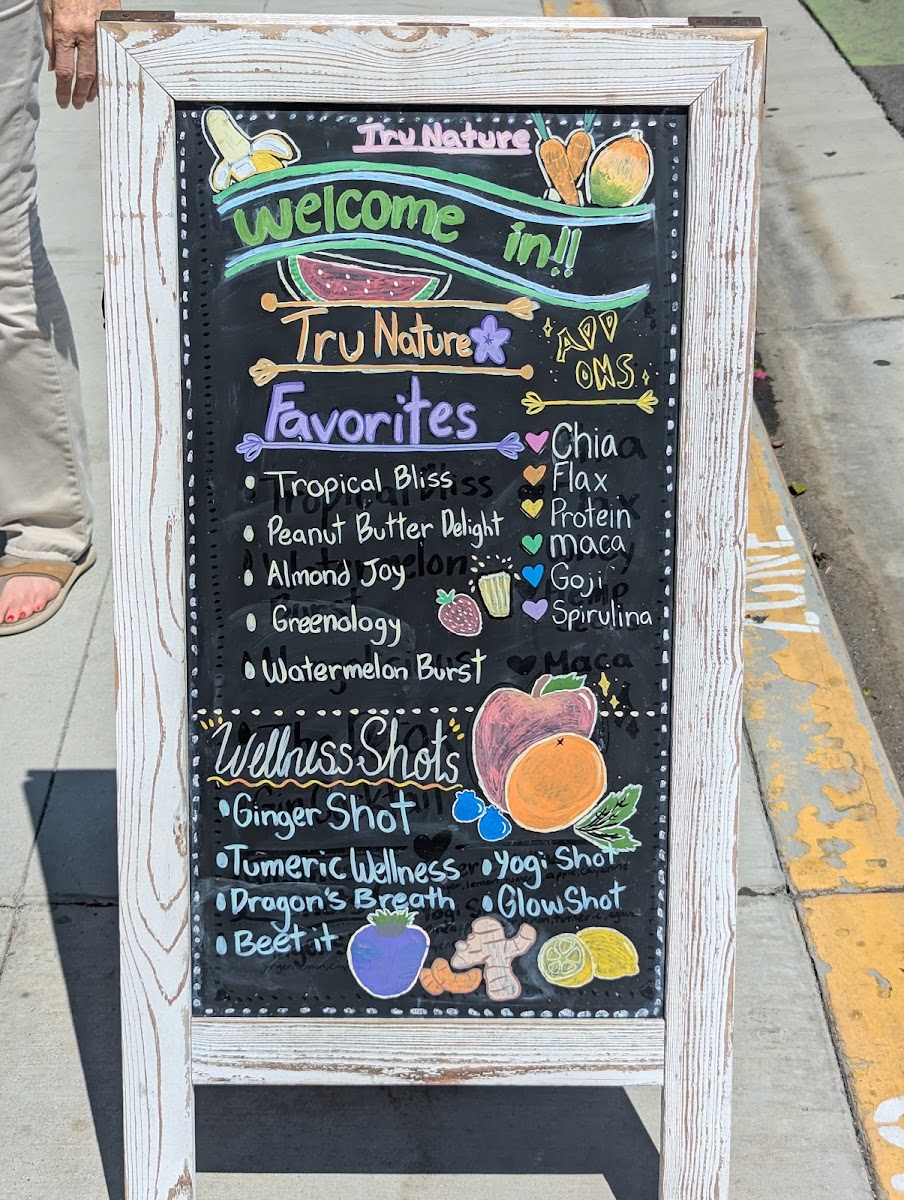 Tru Nature
Welcome in!!
Tru Nature
Favorites
• Tropical Bliss
• Peanut Butter Delight
• Almond Joy
• Greenology
• Watermelon Burst
ADD
ONS
Chia
Flax
Protein
maca
Goji
Spirulina
Wellness Shots
• Ginger Shot
• Tumeric Wellness
• Dragon's Breath
• Beet it
• Yogi Shot
• Glow Shot
ZONE